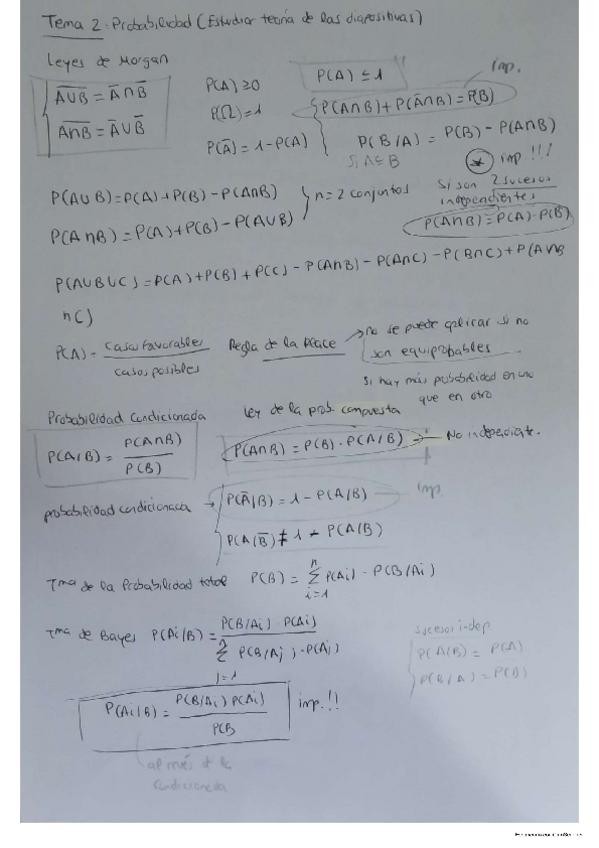 Tema 2: Probabilidad (Estudiar teoría de las diapositivas)
Leyes de Morgan
A∪B̅ = A̅∩B̅
A∩B̅ = A̅∪B̅
P(A) ≥ 0
P(Ω) = 1
P(A̅) = 1 - P(A)
P(A) ≤ 1
imp.
P(A∩B) + P(A̅∩B) = P(B)
P(B/A) = P(B) - P(A∩B)
Si A⊆B
* imp!!!
P(A∪B) = P(A) + P(B) - P(A∩B)
P(A∩B) = P(A) + P(B) - P(A∪B)
n = 2 conjuntos
Si son 2 sucesos
independientes
P(A∩B) = P(A)·P(B)
P(A∪B∪C) = P(A) + P(B) + P(C) - P(A∩B) - P(A∩C) - P(B∩C) + P(A∩B
∩C)
P(A) = casos favorables / casos posibles
Regla de la Place
no se puede aplicar si no
son equiprobables
Si hay más probabilidad en uno
que en otro
Probabilidad Condicionada
P(A/B) = P(A∩B) / P(B)
Ley de la prob. compuesta
P(A∩B) = P(B) · P(A/B) → No independiente.
probabilidad condicionada →
P(A̅/B) = 1 - P(A/B)
imp
P(A/B̅) ≠ 1 - P(A/B)
Tma de la Probabilidad total P(B) = Σ i=1 n P(Ai) · P(B/Ai)
Tma de Bayes P(Ai/B) = P(B/Ai) · P(Ai) / Σ j=1 n P(B/Aj) · P(Aj)
sucesos indep
P(A/B) = P(A)
P(B/A) = P(B)
P(Ai/B) = P(B/Ai) P(Ai) / P(B
imp.!!
al revés d la
condicionada